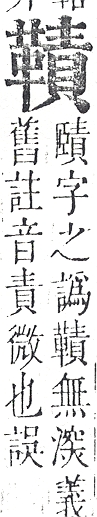 賾字之譌無深義
舊註音責微也誤